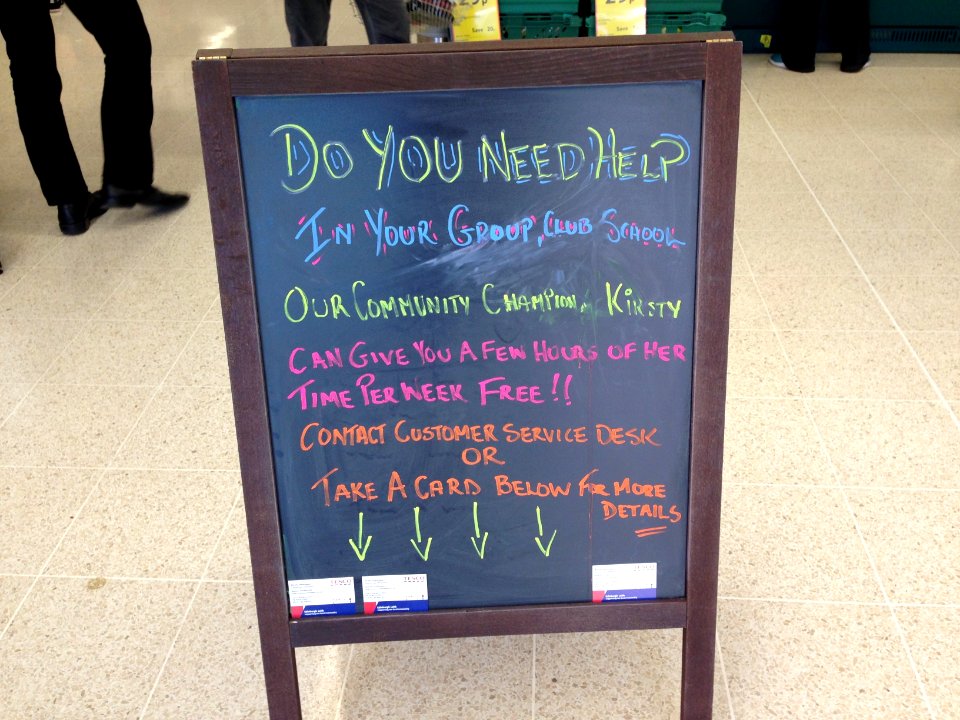 25P
Save 20
Save
DO YOU NEED HELP
IN YOUR GROUP, CLUB SCHOOL
OUR COMMUNITY CHAMPION, KIRSTY
CAN GIVE YOU A FEW HOURS OF HER
TIME PER WEEK FREE!!
CONTACT CUSTOMER SERVICE DESK
OR
TAKE A CARD BELOW FOR MORE
DETAILS
TESCO
TESCO